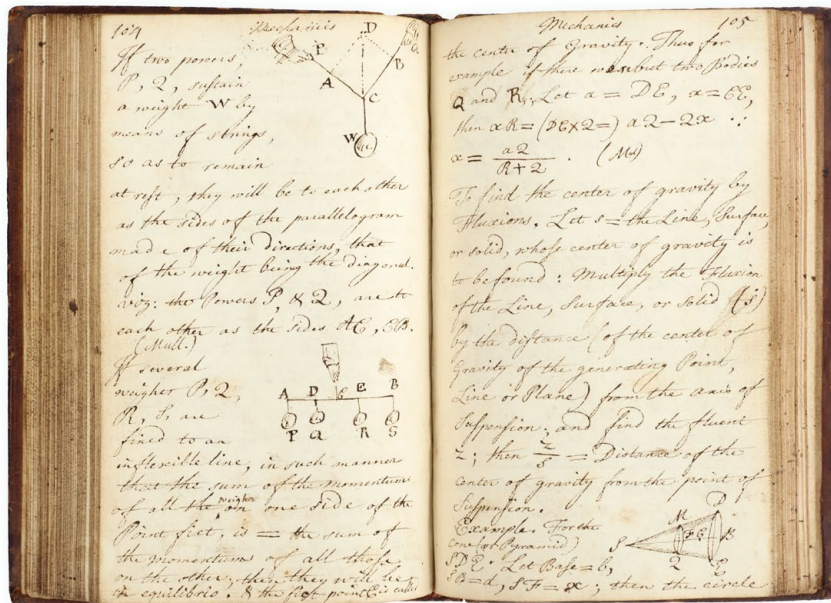 104 Mechanics
If two powers,
P, Q, sustain
a weight W by
means of strings,
so as to remain
at rest, they will be to each other
as the sides of the parallelogram
made of their directions, that
of the weight being the diagonal.
viz: the Powers P, & Q, are to
each other as the sides AC, CB.
(Mull.)
P
D
Q
A
B
C
W
If several
weights P, Q,
R, S, are
fixed to an
inflexible line, in such manner
that the sum of the momentums
of all the weights on one side of the
Point fixt, is = the sum of
the momentum of all those
on the other; then they will be
in equilibrio. & the fixt point C is called
A D C E B
P Q R S
Mechanics 105
the center of Gravity. Thus for
example if there were but two Bodies
Q and R. Let a = DE, x = CE,
then xR = (DC×Q=) aQ-Qx ∴
x = aQ / R+Q. (Ms)
To find the center of gravity by
Fluxions. Let s = the Line, Surface,
or solid, whose center of gravity is
to be found: Multiply the Fluxion
of the Line, Surface, or solid (ṡ)
by the distance (of the center of
Gravity of the generating Point,
Line or Plane) from the axis of
Suspension, and find the fluent
z; then z/s = Distance of the
center of gravity from the point of
Suspension.
Example. For the
Cone (or Pyramid)
SDE. Let Base = b,
SB = d, SF = x; then the circle
S M D F C B Q E